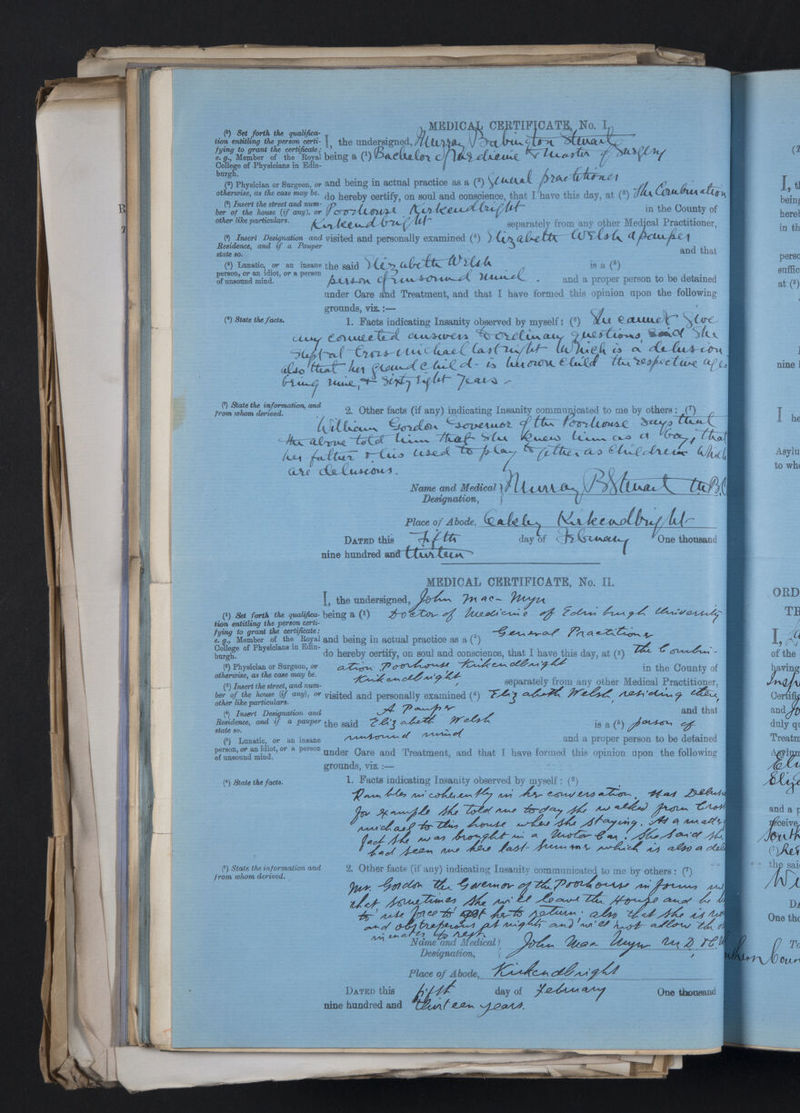 MEDICAL CERTIFICATE, No. I.
(1) Set forth the qualifica-
tion entitling the person certi-
fying to grant the certificate;
e. g., Member of the Royal
College of Physicians in Edin-
burgh.
I, the undersigned, Murray Stewart
being a (1) Bachelor of Medicine & Master of Surgery
(2) Physician or Surgeon, or
otherwise, as the case may be.
and being in actual practice as a (2) General practitioner
do hereby certify, on soul and conscience, that I have this day, at (3) The Combination
(3) Insert the street and num-
ber of the house (if any), or
other like particulars.
Poorhouse Kirkcudbright in the County of
Kirkcudbright separately from any other Medical Practitioner,
(4) Insert Designation and
Residence, and if a Pauper
state so.
visited and personally examined (4) Elizabeth Welsh a pauper
and that
(5) Lunatic, or an insane
person, or an idiot, or a person
of unsound mind.
the said Elizabeth Welsh is a (5)
person of unsound mind. and a proper person to be detained
under Care and Treatment, and that I have formed this opinion upon the following
grounds, viz.:—
(6) State the facts.
1. Facts indicating Insanity observed by myself: (6) She cannot give
any connected answers to ordinary questions, said she
slept at Crossmichael last night which is a delusion
also that her grand child is her own child the respective ages
being nine, & sixty eight years
(7) State the information, and
from whom derived.
2. Other facts (if any) indicating Insanity communicated to me by others: (7)
William Gordon Governor of the Poorhouse says that
the above told him that she knew him as a boy, that
her father & his used to play together as children which
are delusions.
Name and Medical
Designation,
Murray B Stewart M.B.
Place of Abode, Oakley Kirkcudbright
DATED this fifth day of February One thousand
nine hundred and thirteen
MEDICAL CERTIFICATE, No. II.
I, the undersigned, John Mac-Myn
(1) Set forth the qualifica-
tion entitling the person certi-
fying to grant the certificate;
e. g., Member of the Royal
College of Physicians in Edin-
burgh.
being a (1) Doctor of Medicine of Edinburgh University
and being in actual practice as a (2) General Practitioner
do hereby certify, on soul and conscience, that I have this day, at (3) The Combin-
(2) Physician or Surgeon, or
otherwise, as the case may be.
ation Poorhouse Kirkcudbright in the County of
(3) Insert the street, and num-
ber of the house (if any), or
other like particulars.
Kirkcudbright, separately from any other Medical Practitioner,
visited and personally examined (4) Elizabeth Welsh, residing there,
(4) Insert Designation and
Residence, and if a pauper
state so.
A Pauper and that
the said Elizabeth Welsh is a (5) person of
(5) Lunatic, or an insane
person, or an idiot, or a person
of unsound mind.
unsound mind and a proper person to be detained
under Care and Treatment, and that I have formed this opinion upon the following
grounds, viz.:—
(6) State the facts.
1. Facts indicating Insanity observed by myself: (6)
Rambles incoherently in her conversation, Has Delus
for example she told me today she walked from Cross
michael to this house where she staying. As a matter
fact she was brought in a Motor Car. She said she
had seen me here last summer which is also a del
(7) State the information and
from whom derived.
2. Other facts (if any) indicating Insanity communicated to me by others: (7)
Mr. Gordon the Governor of the Poorhouse informs me
that sometimes she will leave the House and he
to use force to get her to return: also that she is
and obstreperous at nights and will not allow the
inmates to rest.
Name and Medical
Designation,
John Mac Myn M.D.
Place of Abode, Kirkcudbright
DATED this fifth day of February One thousand
nine hundred and thirteen years.